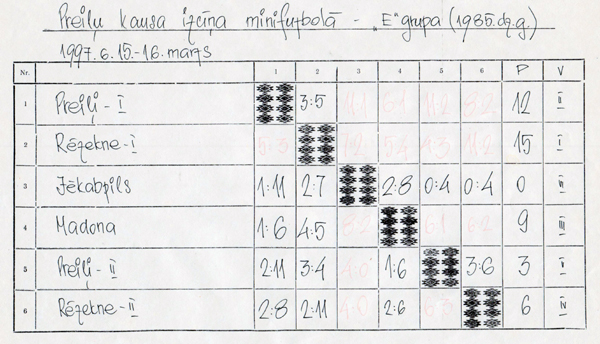 Preiļu kausa izcīņa minifutbolā - "E" grupa (1985. dz. g.)
1997. g. 15.-16. marts
Nr. 1 2 3 4 5 6 P V
1 Preiļi - I 3:5 11:1 6:1 11:2 8:2 12 II
2 Rēzekne - I 5:3 7:2 5:4 4:3 11:2 15 I
3 Jēkabpils 1:11 2:7 2:8 0:4 0:4 0 VI
4 Madona 1:6 4:5 8:2 6:1 6:2 9 III
5 Preiļi - II 2:11 3:4 4:0 1:6 3:6 3 V
6 Rēzekne - II 2:8 2:11 4:0 2:6 6:3 6 IV